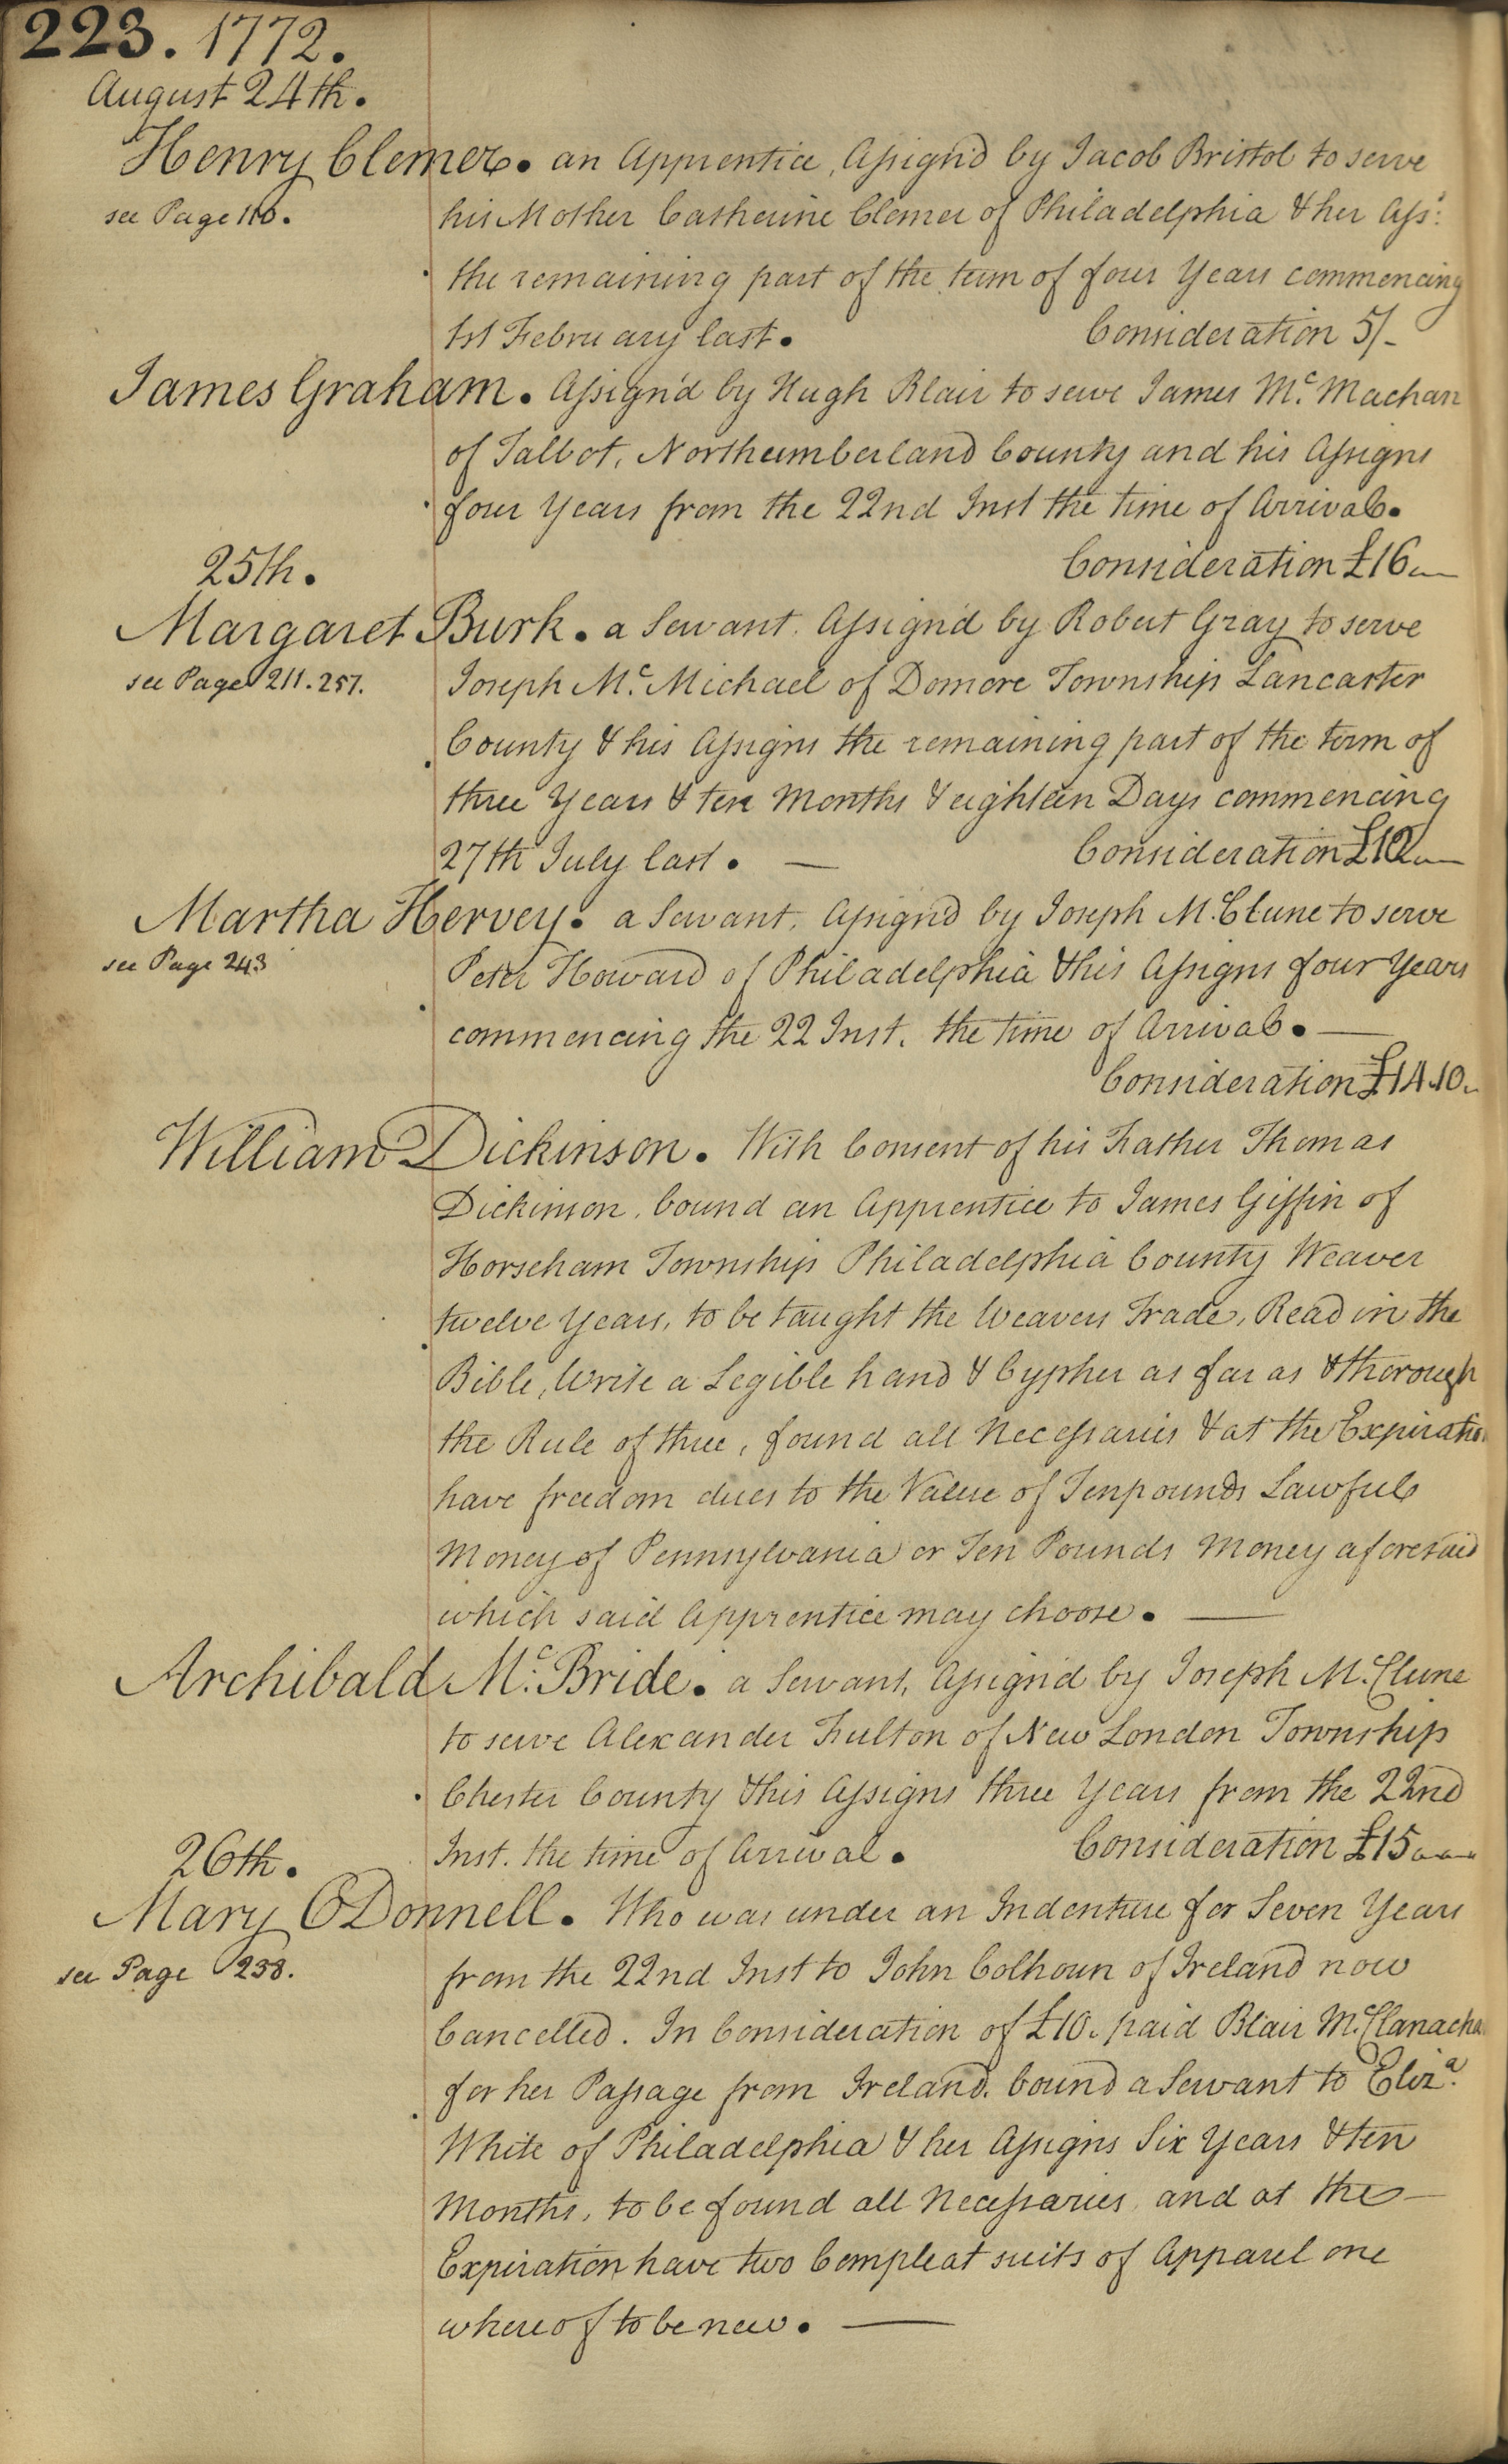 223. 1772.
August 24th.
Henry Clemer. an Apprentice, Assign'd by Jacob Bristol to serve
see Page 110.
his Mother Catherine Clemer of Philadelphia & her Ass:
the remaining part of the term of four Years commencing
1st February last. Consideration 5/-
James Graham. Assign'd by Hugh Blair to serve James Mc. Machan
of Talbot, Northumberland County and his Assigns
four Years from the 22nd Inst the time of Arrival.
Consideration £16
25th.
Margaret Burk. a Servant. Assign'd by Robert Gray to serve
see Page 211. 257.
Joseph Mc. Michael of Domore Township Lancaster
County & his Assigns the remaining part of the term of
three Years & ten Months & eighteen Days commencing
27th July last. — Consideration £12
Martha Hervey. a Servant. Assign'd by Joseph Mc. Clune to serve
see Page 243
Peter Howard of Philadelphia & his Assigns four Years
commencing the 22 Inst. the time of Arrival. —
Consideration £14.10.
William Dickinson. With Consent of his Father Thomas
Dickinson, bound an Apprentice to James Giffin of
Horseham Township Philadelphia County Weaver
twelve Years, to be taught the Weavers Trade, Read in the
Bible, Write a Legible hand & Cypher as far as & thorough
the Rule of three, found all Necessaries & at the Expiration
have freedom dues to the Value of Ten pounds Lawful
Money of Pennsylvania or Ten Pounds Money aforesaid
which said Apprentice may choose. —
Archibald Mc. Bride. a Servant, Assign'd by Joseph Mc. Clune
to serve Alexander Fulton of New London Township
Chester County & his Assigns three Years from the 22nd
Inst. the time of Arrival. Consideration £15
26th.
Mary ODonnell. Who was under an Indenture for Seven Years
see Page 238.
from the 22nd Inst to John Colhoun of Ireland now
Cancelled. In Consideration of £10. paid Blair Mc. Clanachan
for her Passage from Ireland. bound a Servant to Eliza.
White of Philadelphia & her Assigns Six Years & ten
Months, to be found all Necessaries, and at the
Expiration have two Compleat suits of Apparel one
whereof to be new. —